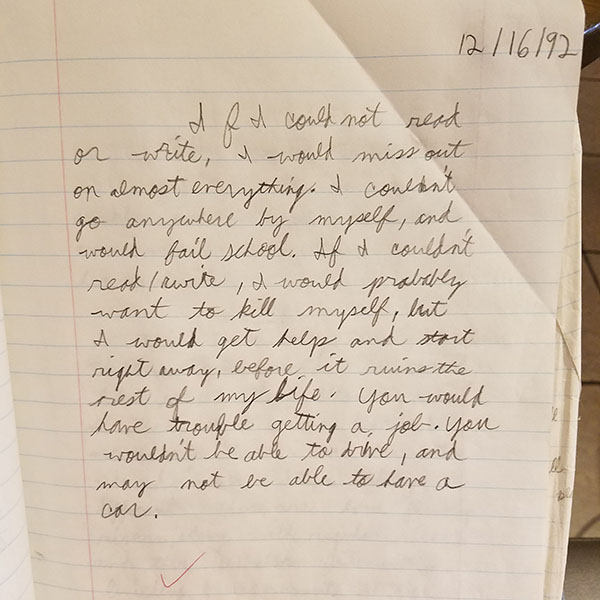 12/16/92
If I could not read
or write, I would miss out
on almost everything. I couldn't
go anywhere by myself, and
would fail school. If I couldn't
read/write, I would probably
want to kill myself, but
I would get help and start
right away, before it ruins the
rest of my life. You would
have trouble getting a job. You
wouldn't be able to drive, and
may not be able to have a
car.